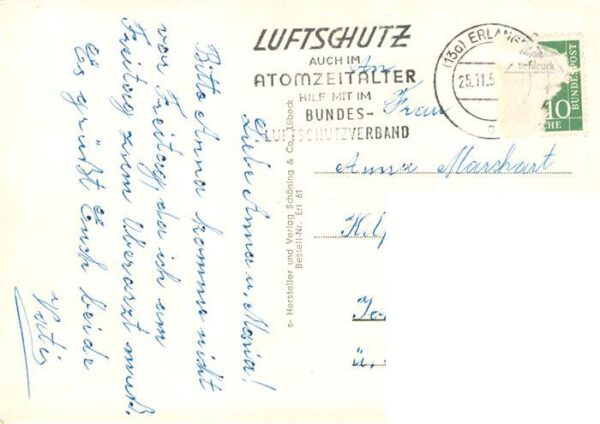 LUFTSCHUTZ
AUCH IM
ATOMZEITALTER
HILF MIT IM
BUNDES-
LUFTSCHUTZVERBAND
(13a) ERLANGEN
25.11.5
10
BUNDESPOST
An
Frau
Anna Marchart
Liebe Anna u. Maria!
Bitte Anna komme nicht
vor Freitag, da ich am
Freitag zum Oberarzt muß.
Es grüßt Euch beide
Vati
Hersteller und Verlag Schöning & Co., Lübeck
Bestell-Nr. Erl 61